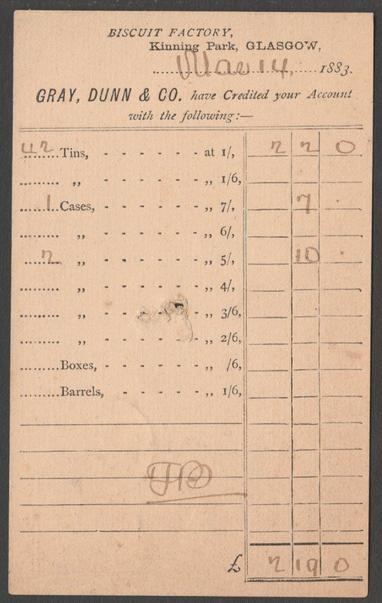 BISCUIT FACTORY,
Kinning Park, GLASGOW,
Mar 14, 1883.
GRAY, DUNN & CO. have Credited your Account
with the following:—
42 Tins, - - - - - at 1/, 2 2 0
......... „ - - - - - „ 1/6,
1 Cases, - - - - - „ 7/, 7 .
......... „ - - - - - „ 6/,
2 „ - - - - - „ 5/, 10 .
......... „ - - - - - „ 4/,
......... „ - - - - - „ 3/6,
......... „ - - - - - „ 2/6,
.........Boxes, - - - - - „ /6,
.........Barrels, - - - - - „ 1/6,
£ 2 19 0